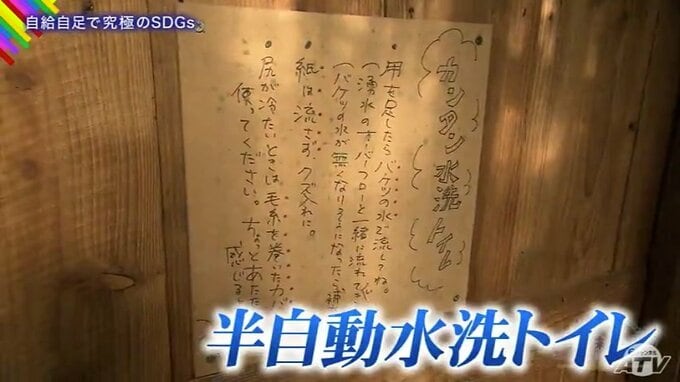 自給自足で究極のSDGs。
カンタン水洗トイレ
用を足したらバケツの水で流してね。
(湧水のオーバーフローと一緒に流れて
(バケツの水が無くなりそうになったら
紙は流さず、クズ入れに。
尻が冷たいときは毛糸を巻いたカバ
使ってください。ちょっとあたた
感じる
半自動水洗トイレ
ATV